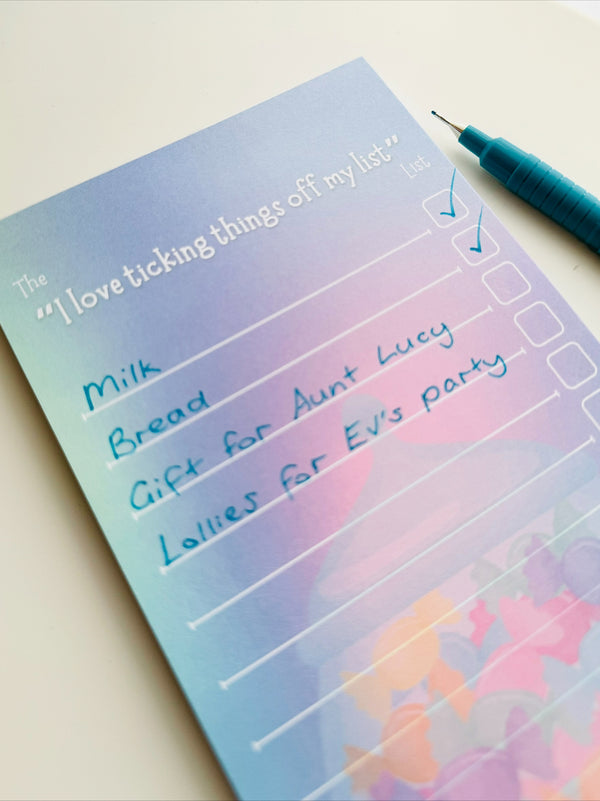 The
"I love ticking things off my list"
List
Milk
Bread
Gift for Aunt Lucy
Lollies for Ev's party